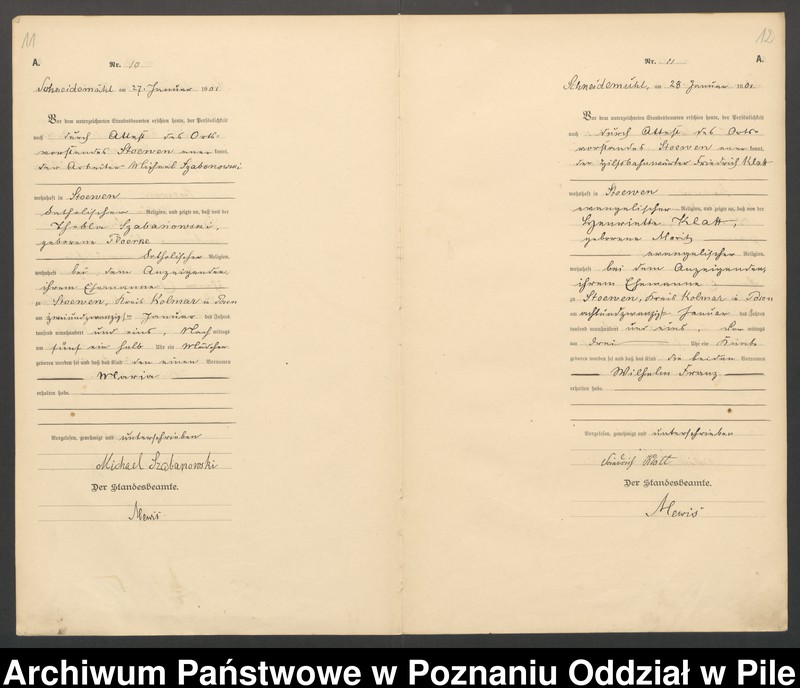 11
A.
Nr. 10
Schneidemühl, am 27. Januar 1901
Vor dem unterzeichneten Standesbeamten erschien heute, der Persönlichkeit
nach durch Attest des Orts-
vorstandes Stoewen aner kannt,
der Arbeiter Michael Szabanowski
wohnhaft in Stoewen
katholischer Religion, und zeigte an, daß von der
Thekla Szabanowski,
geborene
katholischer Religion,
wohnhaft bei dem Anzeigenden,
ihrem Ehemanne
zu Stoewen, Kreis Kolmar i. Posen
am zweiundzwanzigsten Januar des Jahres
tausend neunhundert und eins, Nach mittags
um fünf ein halb Uhr ein Mädchen
geboren worden ist und daß das Kind den einen Vornamen
Maria
erhalten habe.
Vorgelesen, genehmigt und unterschrieben
Michael Szabanowski
Der Standesbeamte.
Mewis
12
Nr. 11
A.
Schneidemühl, am 28. Januar 1901
Vor dem unterzeichneten Standesbeamten erschien heute, der Persönlichkeit
nach durch Attest des Orts-
vorstandes Stoewen aner kannt,
der Hilfsbahnwärter Friedrich Klatt
wohnhaft in Stoewen
evangelischer Religion, und zeigte an, daß von der
Henriette Klatt,
geborene Moritz
evangelischer Religion,
wohnhaft bei dem Anzeigenden,
ihrem Ehemanne
zu Stoewen, Kreis Kolmar i. Posen
am achtundzwanzigsten Januar des Jahres
tausend neunhundert und eins, Vor mittags
um drei Uhr ein Knabe
geboren worden ist und daß das Kind die beiden Vornamen
Wilhelm Franz
erhalten habe.
Vorgelesen, genehmigt und unterschrieben
Friedrich Klatt
Der Standesbeamte.
Mewis
Archiwum Państwowe w Poznaniu Oddział w Pile